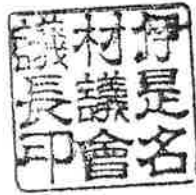 伊是名
村議會
議長印